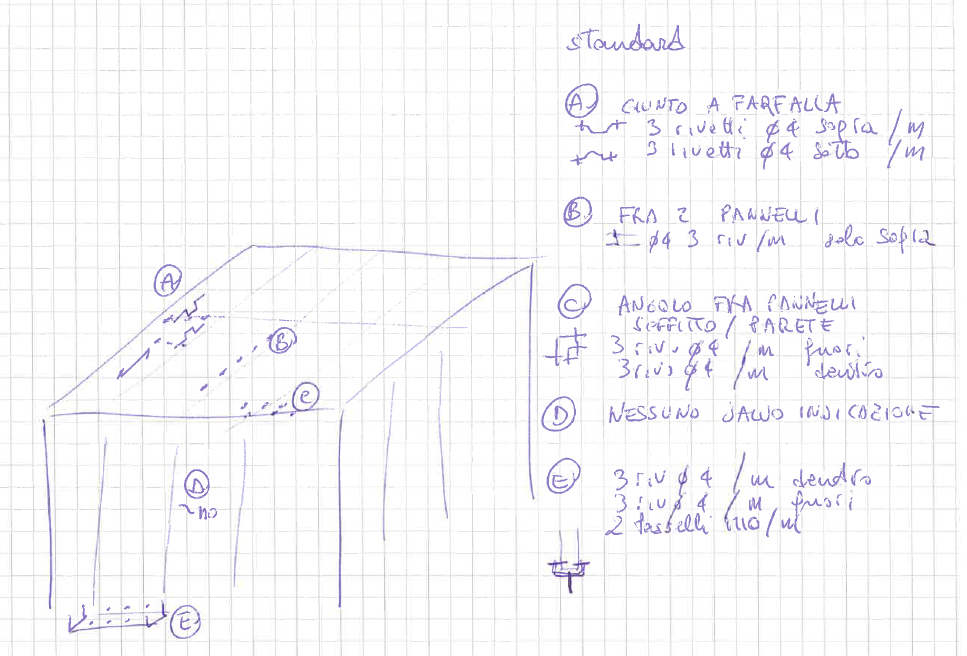 standard
A GIUNTO A FARFALLA
3 rivetti ø4 sopra /m
3 rivetti ø4 sotto /m
B FRA 2 PANNELLI
ø4 3 riv/m solo sopra
C ANGOLO FRA PANNELLI
SOFFITTO/PARETE
3 riv. ø4 /m fuori
3 riv. ø4 /m dentro
D NESSUNO SALVO INDICAZIONE
E 3 riv ø4 /m dentro
3 riv ø4 /m fuori
2 tasselli /m
A
B
C
D
~no
E